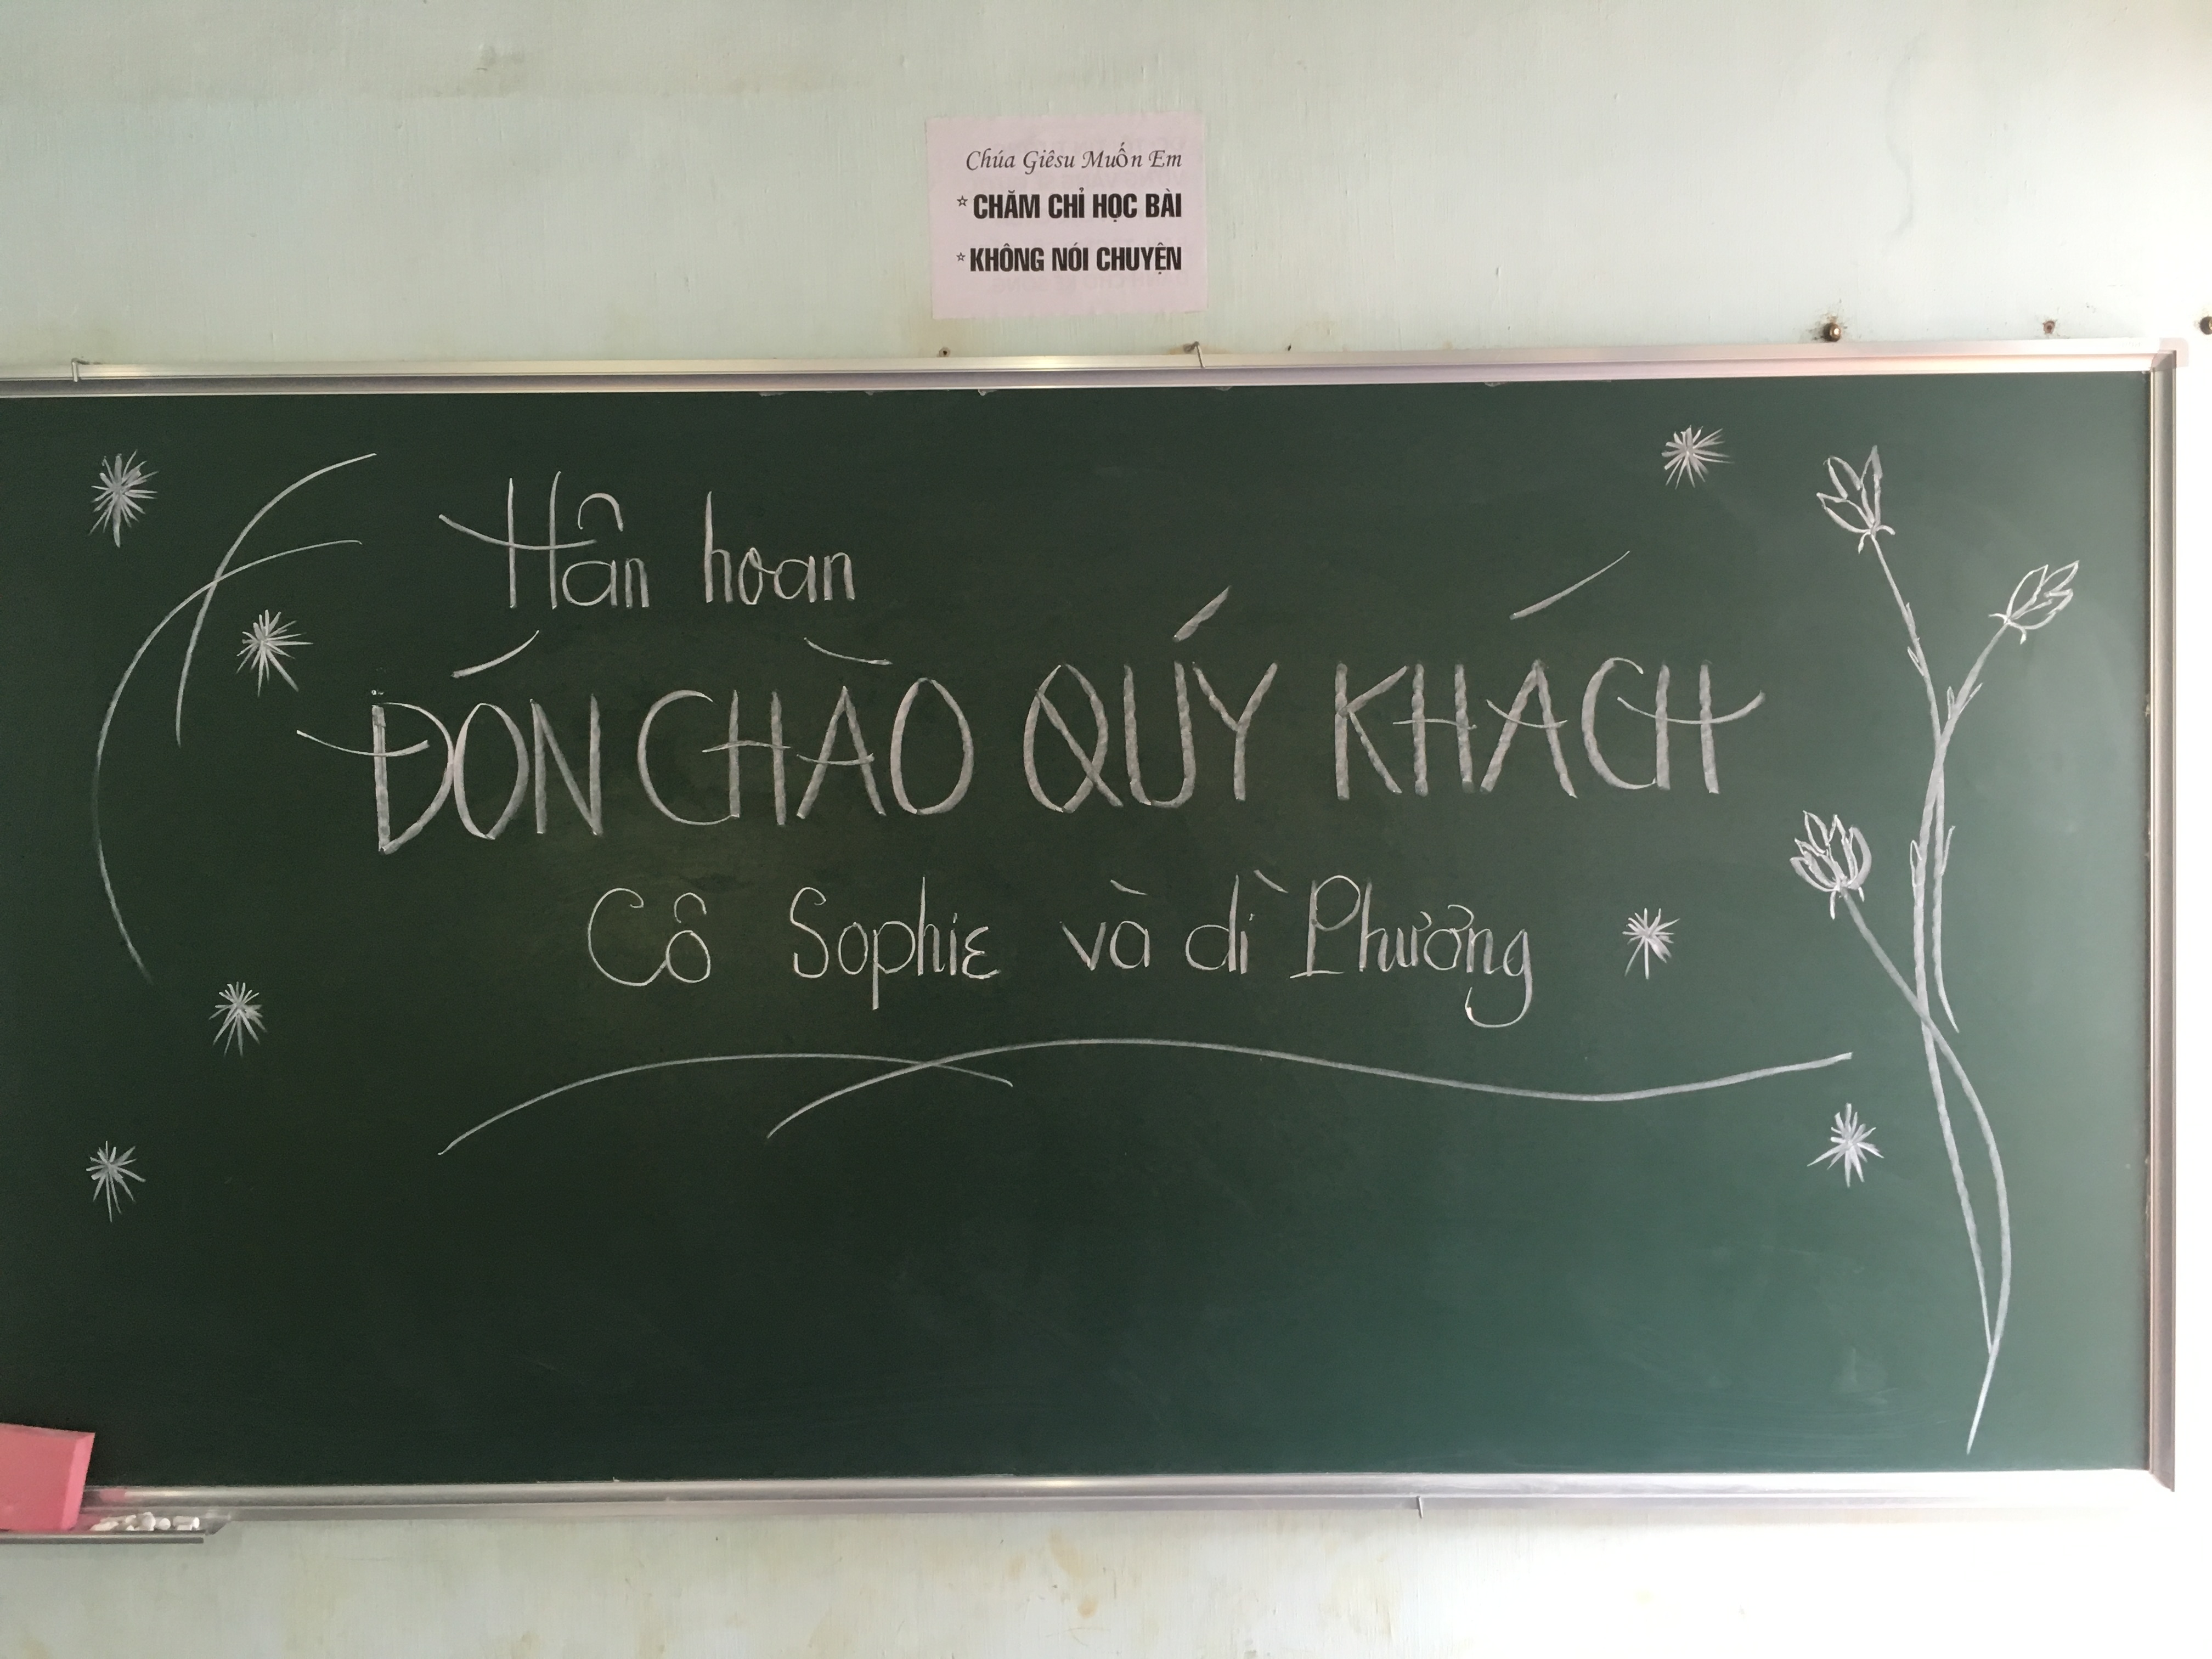 Chúa Giêsu Muốn Em
* CHĂM CHỈ HỌC BÀI
* KHÔNG NÓI CHUYỆN
Hân hoan
ĐÓN CHÀO QUÝ KHÁCH
Cô Sophie và dì Phưởng